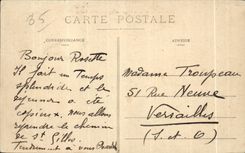 35
CARTE POSTALE
CORRESPONDANCE
ADRESSE
Bonjour Rosette
Il fait un temps
splendide et le
déjeuner a été
copieux. nous allons
reprendre le chemin
de St Gilles.
Tendrement à vous
Madame Troupeau
51 Rue Neuve
Versailles
(S. et O)